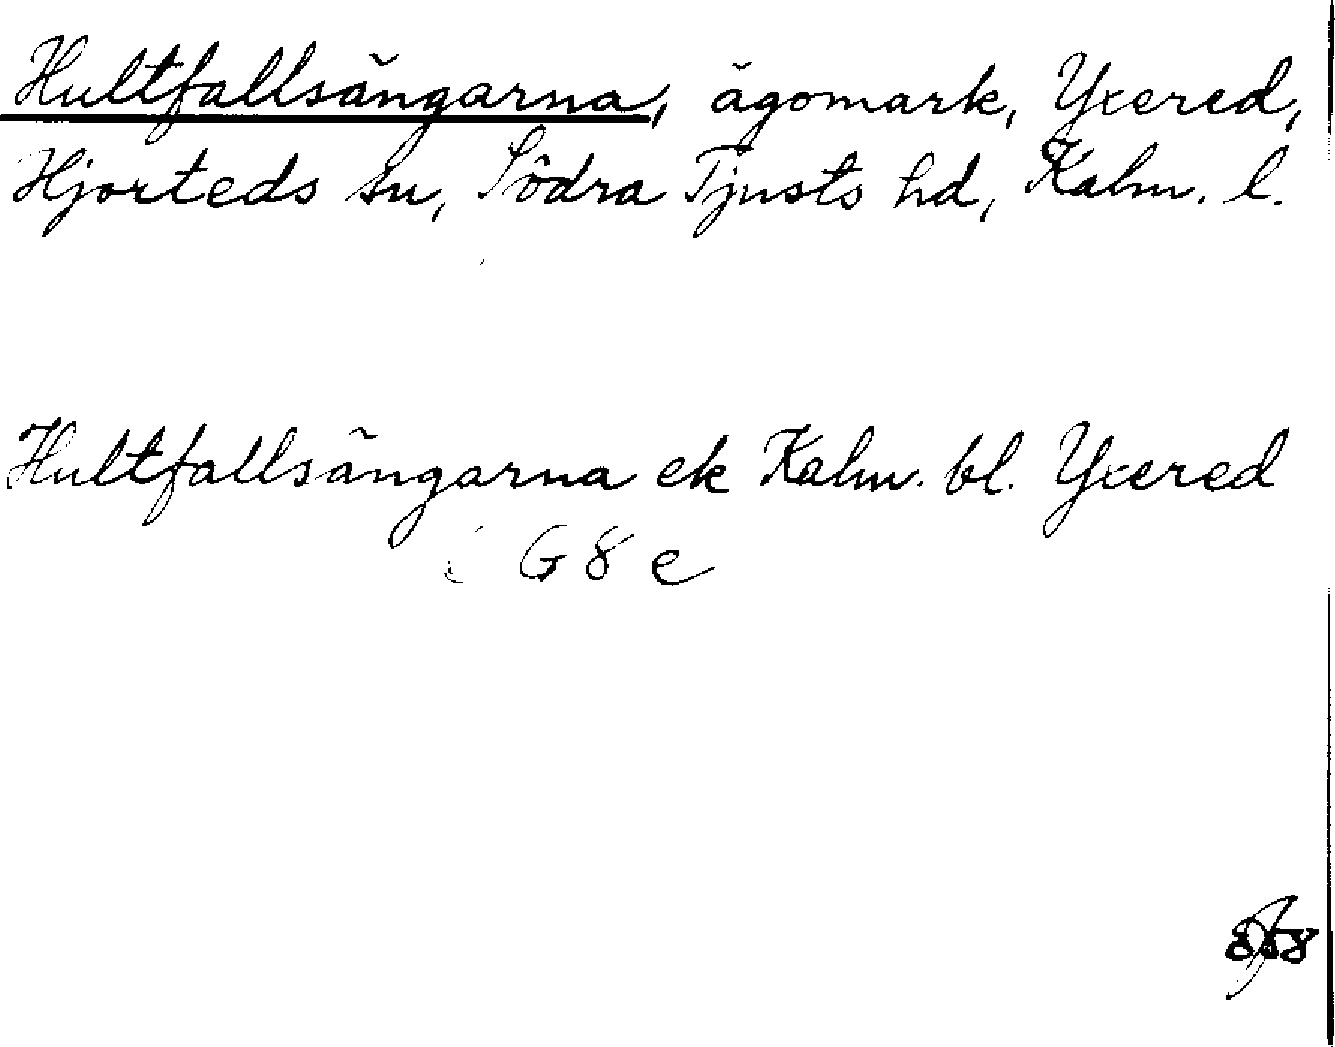 Hultfallsängarna, ägomark, Yxered,
Hjorteds sn, Södra Tjusts hd, Kalm. l.
Hultfallsängarna ek Kalm. bl. Yxered
G 8 e